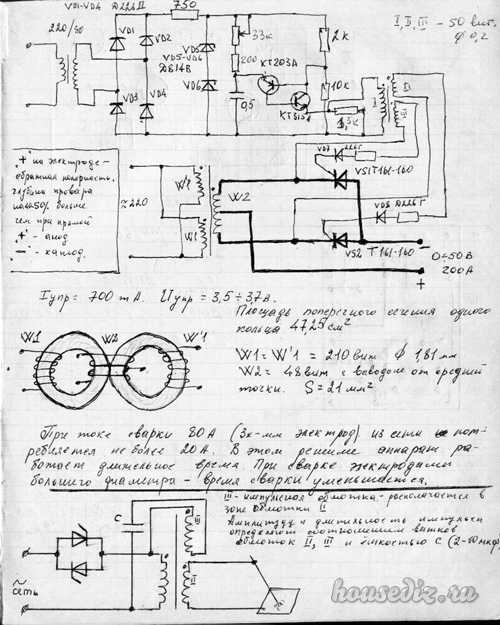 VD1-VD4 Д226Д
750
I, II, III - 50 вит.
ф 0,2
220/40
VD1
VD2
VD5-VD6
Д814В
VD5
VD6
VD3
VD4
33к
200
0,5
КТ203А
КТ315
2к
10к
1,3к
I
II
III
"+" на электроде -
обратная полярность.
глубина провара
на 40-50% больше
чем при прямой
"+" - анод
"-" - катод.
≈220
W'1
W1
W2
VD7 Д226Г
VS1 Т161-160
VD8 Д226Г
VS2 Т161-160
-
0÷50В
200А
+
Iупр = 700 mА. Uупр = 3,5÷3,7в.
Площадь поперечного сечения одного
кольца 47,25 см²
W1 W2 W'1
W1 = W'1 = 210 вит ф 1,81 мм
W2 = 48 вит с выводом от средней
точки. S = 21 мм²
При токе сварки 80А (3х-мм электрод) из сети пот-
ребляется не более 20А. В этом режиме аппарат ра-
ботает длительное время. При сварке электродами
большего диаметра - время сварки уменьшается.
III - импульсная обмотка - располагается в
зоне обмотки II
Амплитуду и длительность импульса
определяют соотношением витков
обмоток II, III и ёмкостью С (2-80 мкф)
C
III
I
II
сеть
housediz.ru